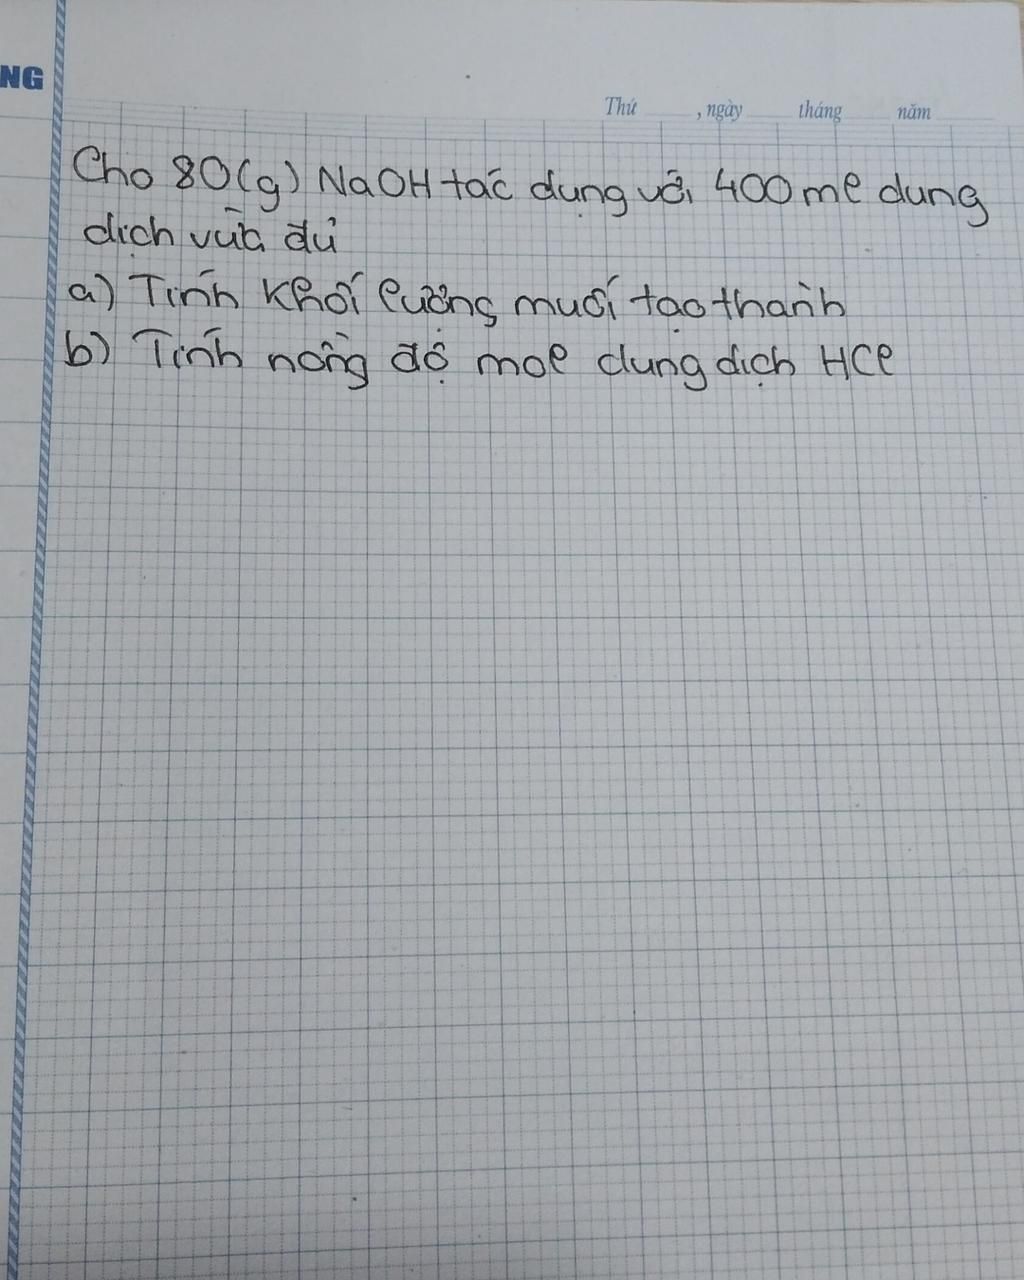 NG
Thứ , ngày tháng năm
Cho 80(g) NaOH tác dụng với 400 ml dung
dịch vừa đủ
a) Tính khối lượng muối tạo thành
b) Tính nồng độ mol dung dịch HCl